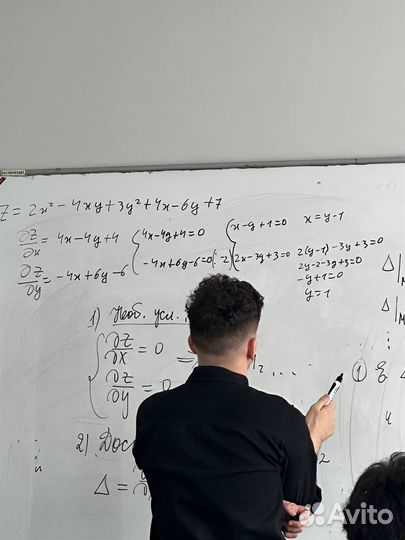 Z = 2x² - 4xy + 3y² + 4x - 6y + 7
∂Z/∂x = 4x - 4y + 4
∂Z/∂y = -4x + 6y - 6
{ 4x - 4y + 4 = 0
-4x + 6y - 6 = 0 |:(-2)
{ x - y + 1 = 0
2x - 3y + 3 = 0
x = y - 1
2(y-1) - 3y + 3 = 0
2y - 2 - 3y + 3 = 0
-y + 1 = 0
y = 1
1) Необ. усл.
{ ∂Z/∂x = 0
∂Z/∂y = 0
2) Дос
Δ =
Δ|M
Δ|M
①
Avito